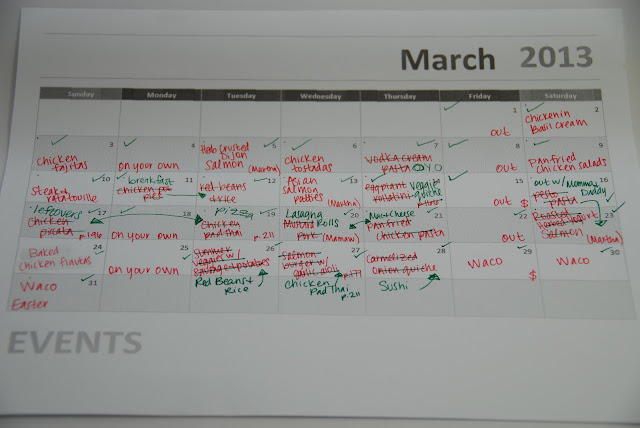 March 2013
Sunday Monday Tuesday Wednesday Thursday Friday Saturday
1
out
2
chicken in
Basil Cream
3
Chicken
fajitas
4
on your own
5
Herb Crusted
Dijon
Salmon
(Martha)
6
Chicken
tostadas
7
Vodka cream
pasta OYO
8
out
9
Panfried
Chicken Salads
10
Steak +
ratatouille
11
breakfast
Chicken pot
pies
12
red beans
+ rice
13
Asian
Salmon
patties
(Martha)
14
eggplant
rolatini
Veggie
quiche
15
out $
16
out w/ Momma +
Daddy
pesto
pasta
17
leftovers
Chicken
picata p.196
18
on your own
19
pizza
Chicken
pad thai
p.211
20
Lasagna Rolls
Mustard
Pork (Mamaw)
21
Mac + Cheese
Panfried
Chicken pasta
22
out
23
Roasted
Salmon
(Martha)
24
Baked
Chicken flautas
25
on your own
26
Summer
veggies w/
sausage + potatoes
Red Beans +
Rice
27
Salmon
burger w/
garlic aioli p.177
Chicken
Pad Thai
p.211
28
Carmelized
onion quiche
Sushi
29
Waco
$
30
Waco
31
Waco
Easter
EVENTS